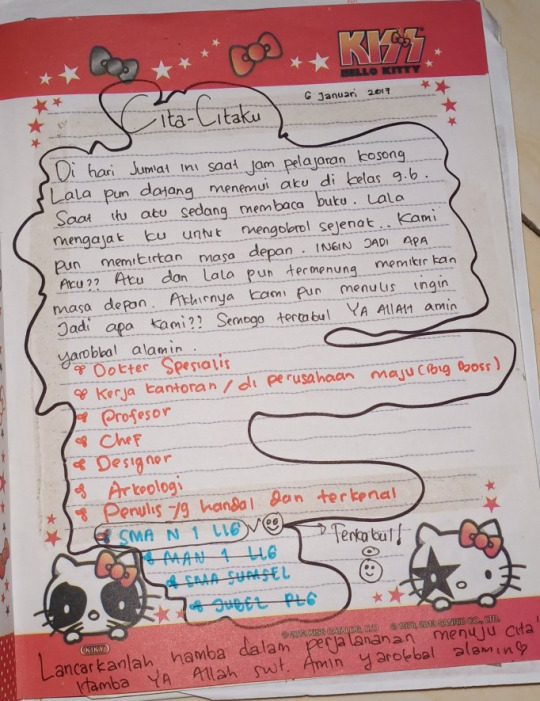 KISS
HELLO KITTY
6 Januari 2017
Cita-Citaku
Di hari Jumat ini saat jam pelajaran kosong
Lala pun datang menemui aku di kelas 9.6.
Saat itu aku sedang membaca buku. Lala
mengajak ku untuk mengobrol sejenak.. Kami
pun memikirkan masa depan. INGIN JADI APA
AKU?? Aku dan Lala pun termenung memikirkan
masa depan. Akhirnya kami pun menulis ingin
Jadi apa kami?? Semoga terkabul YA Allah amin
yarobbal alamin.
Dokter Spesialis
Kerja kantoran / di perusahaan maju (Big Boss)
Profesor
Chef
Designer
Arkeologi
Penulis yg handal dan terkenal
SMA N 1 LLG
→ Terkabul!
MAN 1 LLG
SMA SUMSEL
PLG
(KIKY)
Lancarkanlah hamba dalam perjalananan menuju Cita"
Hamba YA Allah swt. Amin yarobbal alamin